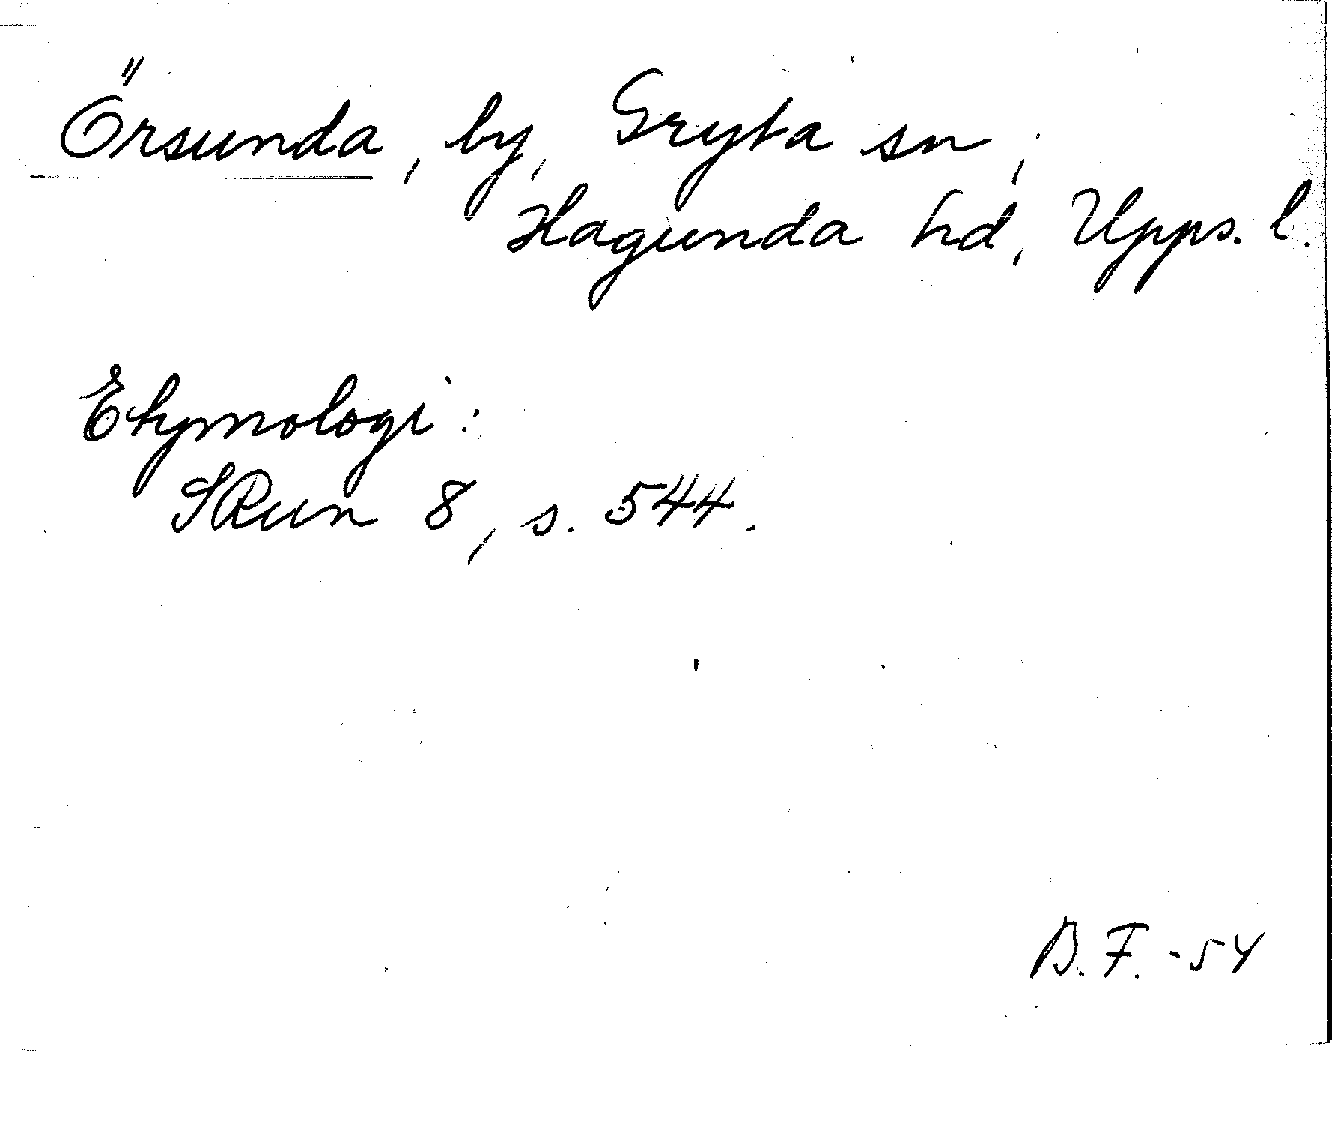 Örsunda, by, Gryta sn,
Hagunda hd, Upps. l.
Etymologi:
SRun 8, s. 544.
B.F.-54